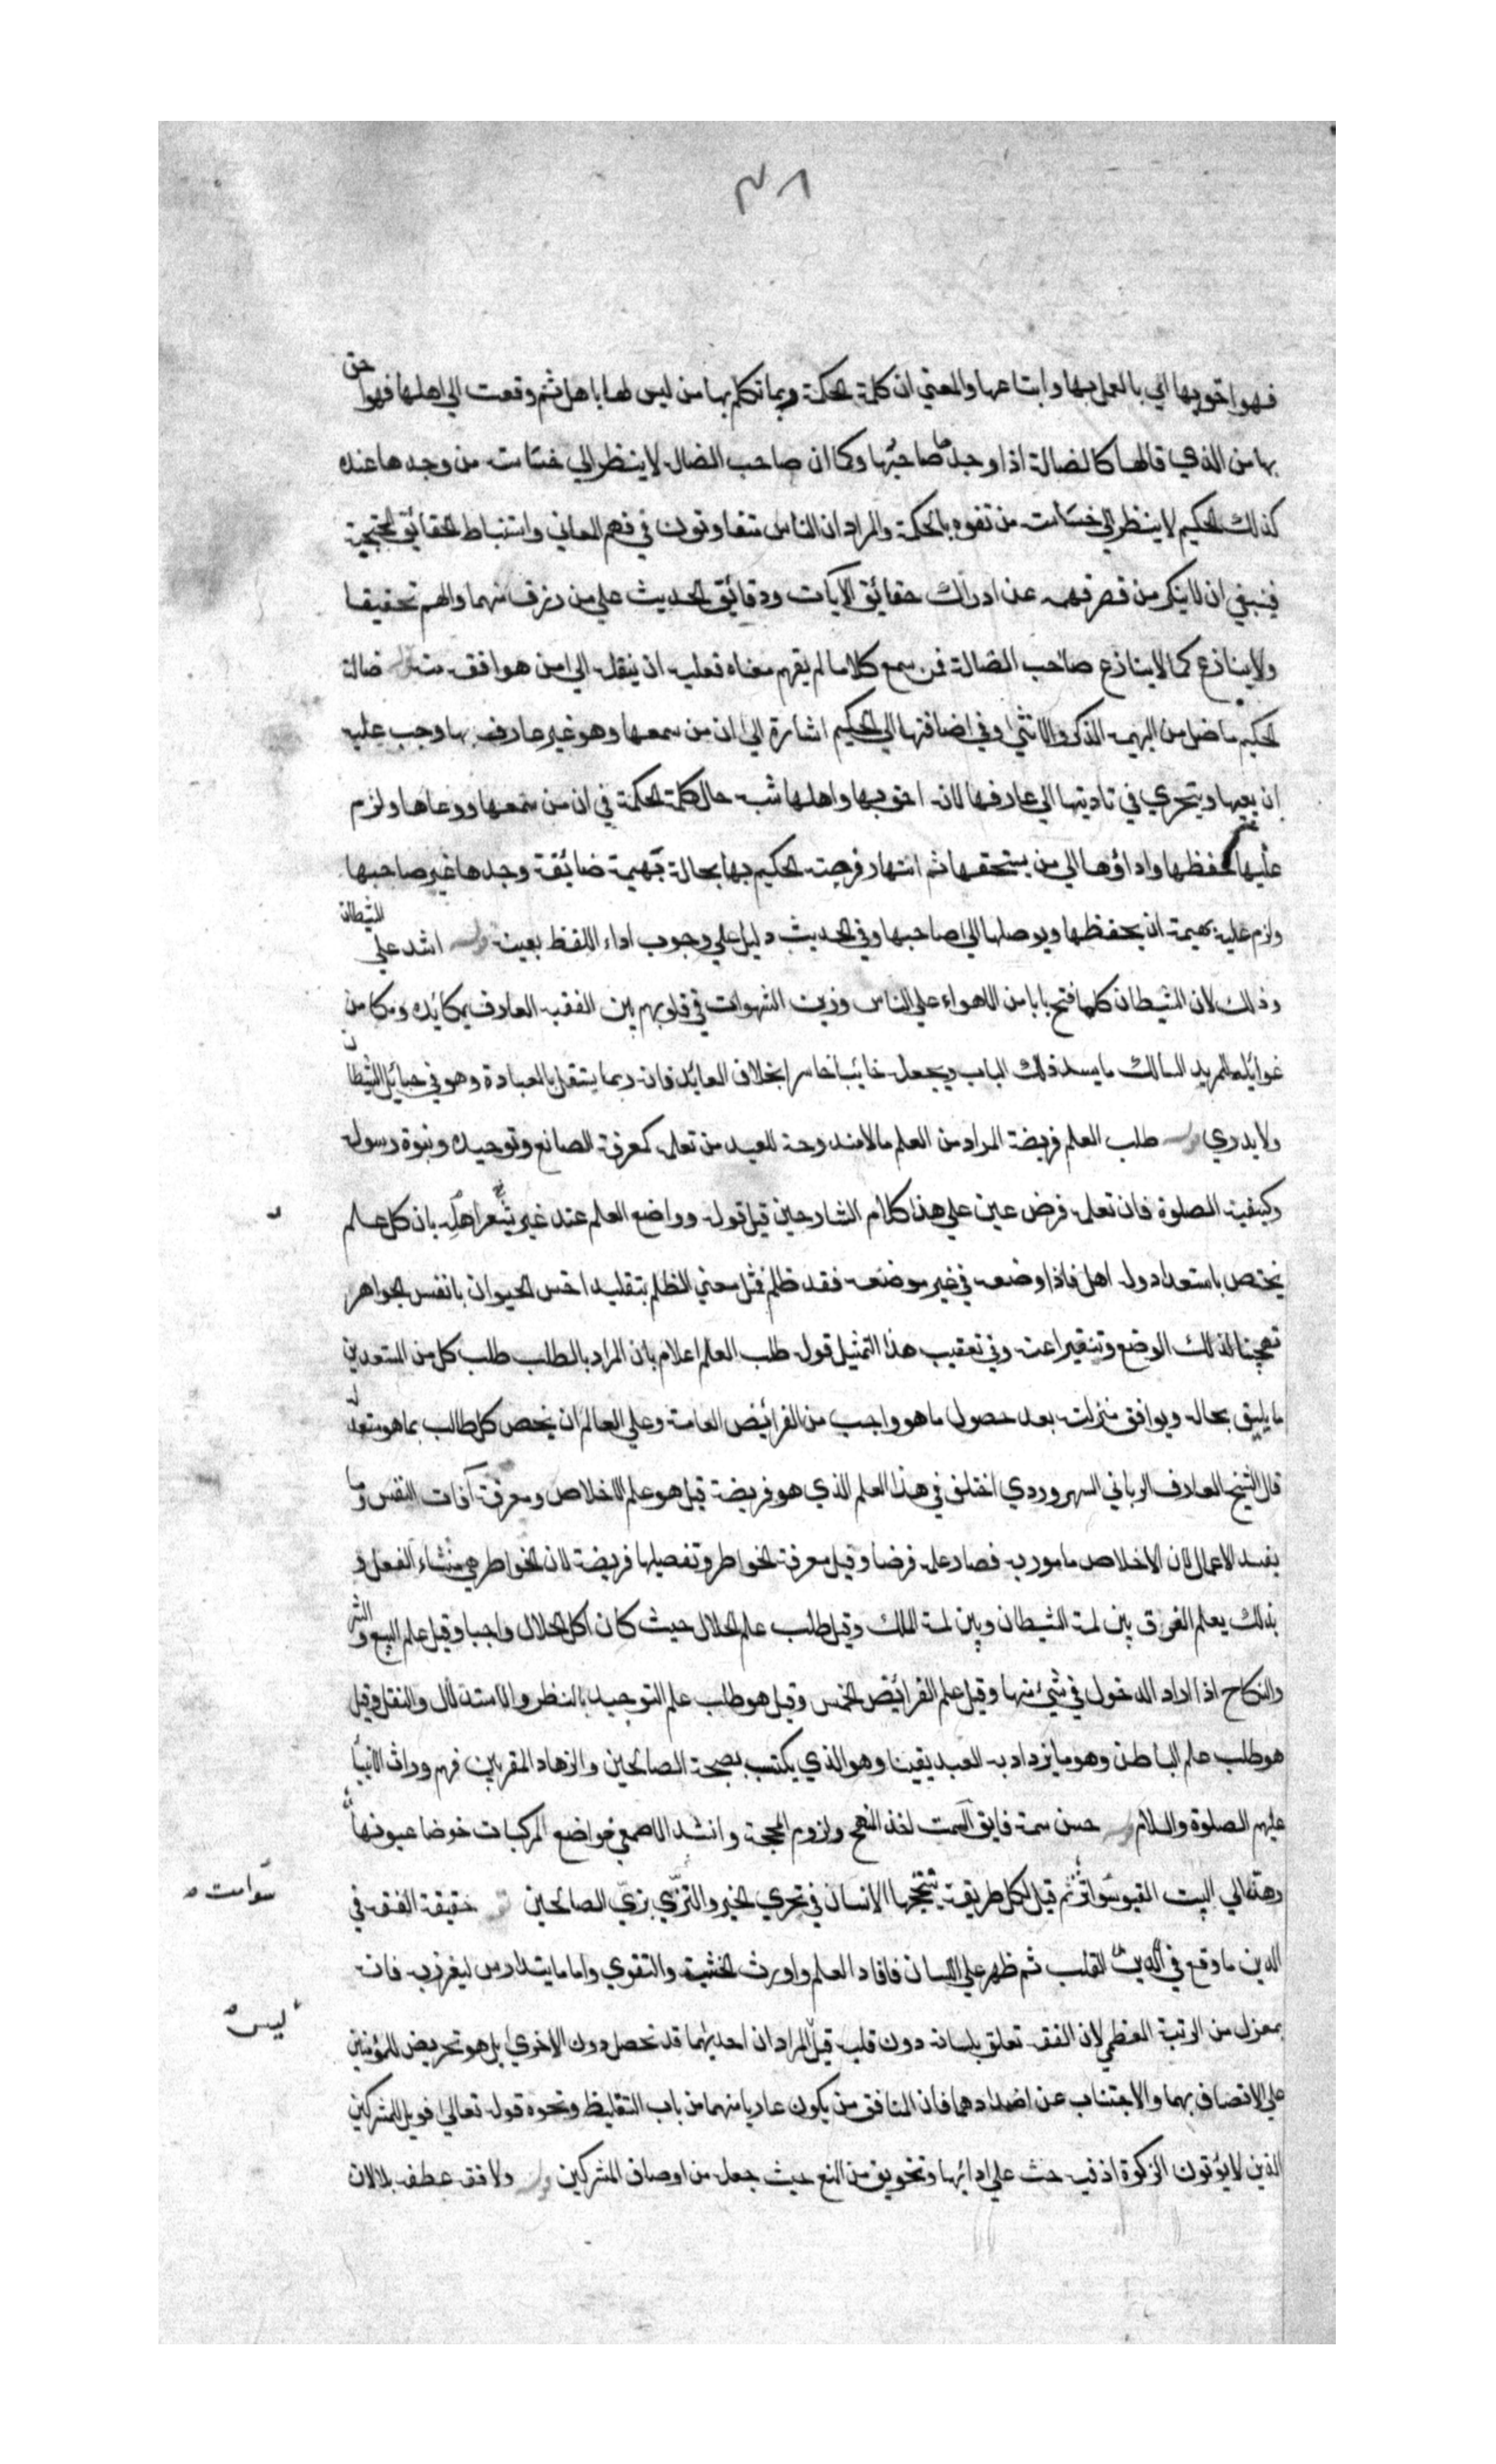 ٣٨
فهو احق بها اي بالعمل بها واتباعها والمعني ان كلمة الحكمة ربما تكلم بها من ليس لها باهل ثم وقعت الي اهلها فهو احق
بها من الذي قالها كالضالة اذا وجدها صاحبها وكما ان صاحب الضالة لا ينظر الي خساسة من وجدها عنده
كذلك الحكيم لا ينظر الي خساسة من تفوه بالحكمة والمراد ان الناس متفاوتون في فهم المعاني واستنباط الحقائق المحتجبة
فينبغي ان لا ينكر من قصر فهمه عن ادراك حقائق الآيات ودقائق الحديث علي من رزق فهما والهم تحقيقا
ولا ينازع كما لا ينازع صاحب الضالة فمن سمع كلاما لم يفهم معناه فعليه ان ينقله الي من هو افقه منه ضالة
الحكيم ما ضل من البهيمة الذكر والانثي وفي اضافتها الي الحكيم اشارة الي ان من سمعها وهو غير عارف بها وجب عليه
ان يعيها ويتحري في تاديتها الي عارفها لانه احق بها واهلها شبه حال كلمة الحكمة في ان من سمعها ووعاها ولزم
عليها حفظها واداؤها الي من يستحقها ثم انتهاز فرصة الحكيم بها بحالة بهيمة ضائعة وجدها غير صاحبها
ولزم عليه بهيمة ان يحفظها ويوصلها الي صاحبها وفي الحديث دليل علي وجوب اداء اللفظ بعينه اشد علي الشيطان
وذلك لان الشيطان كلما فتح بابا من الاهواء علي الناس وزين الشهوات في قلوبهم بين الفقيه العارف بمكائده ومكامن
غوائله للمريد السالك ما يسد ذلك الباب ويجعله خائبا خاسرا بخلاف العابد فانه ربما يشتغل بالعبادة وهو في حبائل الشيطان
ولا يدري طلب العلم فريضة المراد من العلم ما لا مندوحة للعبد من تعلمه كمعرفة الصانع وتوحيده ونبوة رسوله
وكيفية الصلوة فان تعلمه فرض عين علي هذا كلام الشارحين قيل قوله وواضع العلم عند غير اهله يشعر بان كل علم
يختص باستعداد وله اهل فاذا وضعه في غير موضعه فقد ظلم فمثل معني الظلم بتقليد اخس الحيوان بانفس الجواهر
تهجينا لذلك الوضع وتنفيرا عنه وفي تعقيب هذا التمثيل قوله طلب العلم اعلام بان المراد بالطلب طلب كل من المستعدين
ما يليق بحاله ويوافق منزلته بعد حصول ما هو واجب من الفرائض العامة وعلي العالم ان يخص كل طالب بما هو مستعد له
قال الشيخ العارف الرباني السهروردي اختلف في هذا العلم الذي هو فريضة قيل هو علم الاخلاص ومعرفة آفات النفس وما
يفسد الاعمال لان الاخلاص مامور به فصار علمه فرضا وقيل معرفة الخواطر وتفصيلها فريضة لان الخواطر هي منشاء الفعل و
بذلك يعلم الفرق بين لمة الشيطان وبين لمة الملك وقيل طلب علم الحلال حيث كان اكل الحلال واجبا وقيل علم البيع والشرا
والنكاح اذا اراد الدخول في شيء منها وقيل علم الفرائض الخمس وقيل هو طلب علم التوحيد بالنظر والاستدلال والنقل وقيل
هو طلب علم الباطن وهو ما يزداد به العبد يقينا وهو الذي يكتسب بصحبة الصالحين والزهاد المقربين فهم وراث الانبيا
عليهم الصلوة والسلام حسن سمة فايق السمت اخذ النهج ولزوم المحجة وانشد الاصمعي خواضع الركبات خوضا عيونها
وهن الي البيت العتيق سوامت ثم قيل لكل طريقة ينتهجها الانسان في تحري الخير والتزي بزي الصالحين حقيقة الفقه في
الدين ما وقع في القلب ثم ظهر علي اللسان فافاد العلم واورث الخشية والتقوي واما ما يتدارس ليغرر به فانه
بمعزل من الرتبة العظمي لان الفقه تعلق بلسانه دون قلبه قيل المراد ان احديهما قد تحصل دون الاخري بل هو تحريض للمؤمنين
علي الاتصاف بهما والاجتناب عن اضدادهما فان المنافق من يكون عاريا منهما من باب التغليظ ونحوه قوله تعالي فويل للمشركين
الذين لا يؤتون الزكوة اذ فيه حث علي ادائها وتخويف من المنع حيث جعله من اوصاف المشركين ولا فقه عطف بلا لان
سوامت
ليس